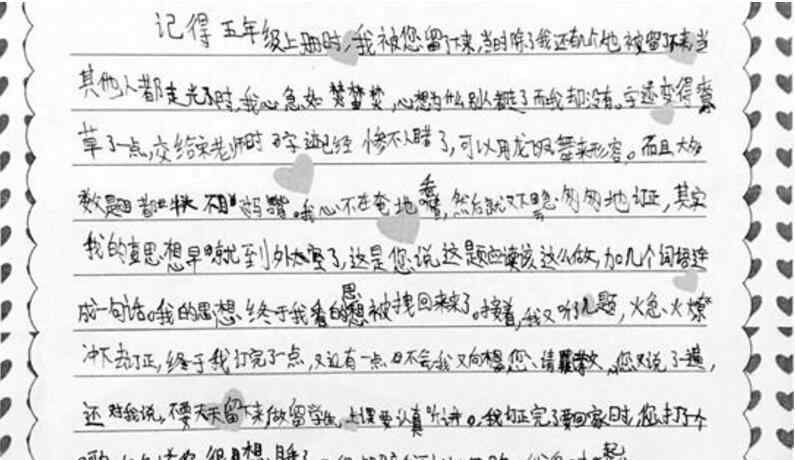 记得五年级上册时，我被您留了下来，当时除了我还有几个也被留下来，当
其他人都走光了时，我心急如焚，心想为什么别人都走了而我却没有。字迹变得潦
草了一点，交给宋老师时字迹已经惨不人睹了，可以用龙飞凤舞来形容。而且大多
数题目都牛头不对马嘴。我心不在焉地看，然后就又匆匆地订正，其实
我的意思想早就到外太空了，这是您说这题应该这么做，加几个词语连
成一句话。我的思想终于我看的思想被拽回来了。接着，我又听了几题，火急火燎
冲下去订正，终于我订完了一点，又还有一点不会我又向您请教，您又说了一遍，
还对我说，不要天天留下来做留学生，上课要认真听讲。我订正完了要回家时，您打了个